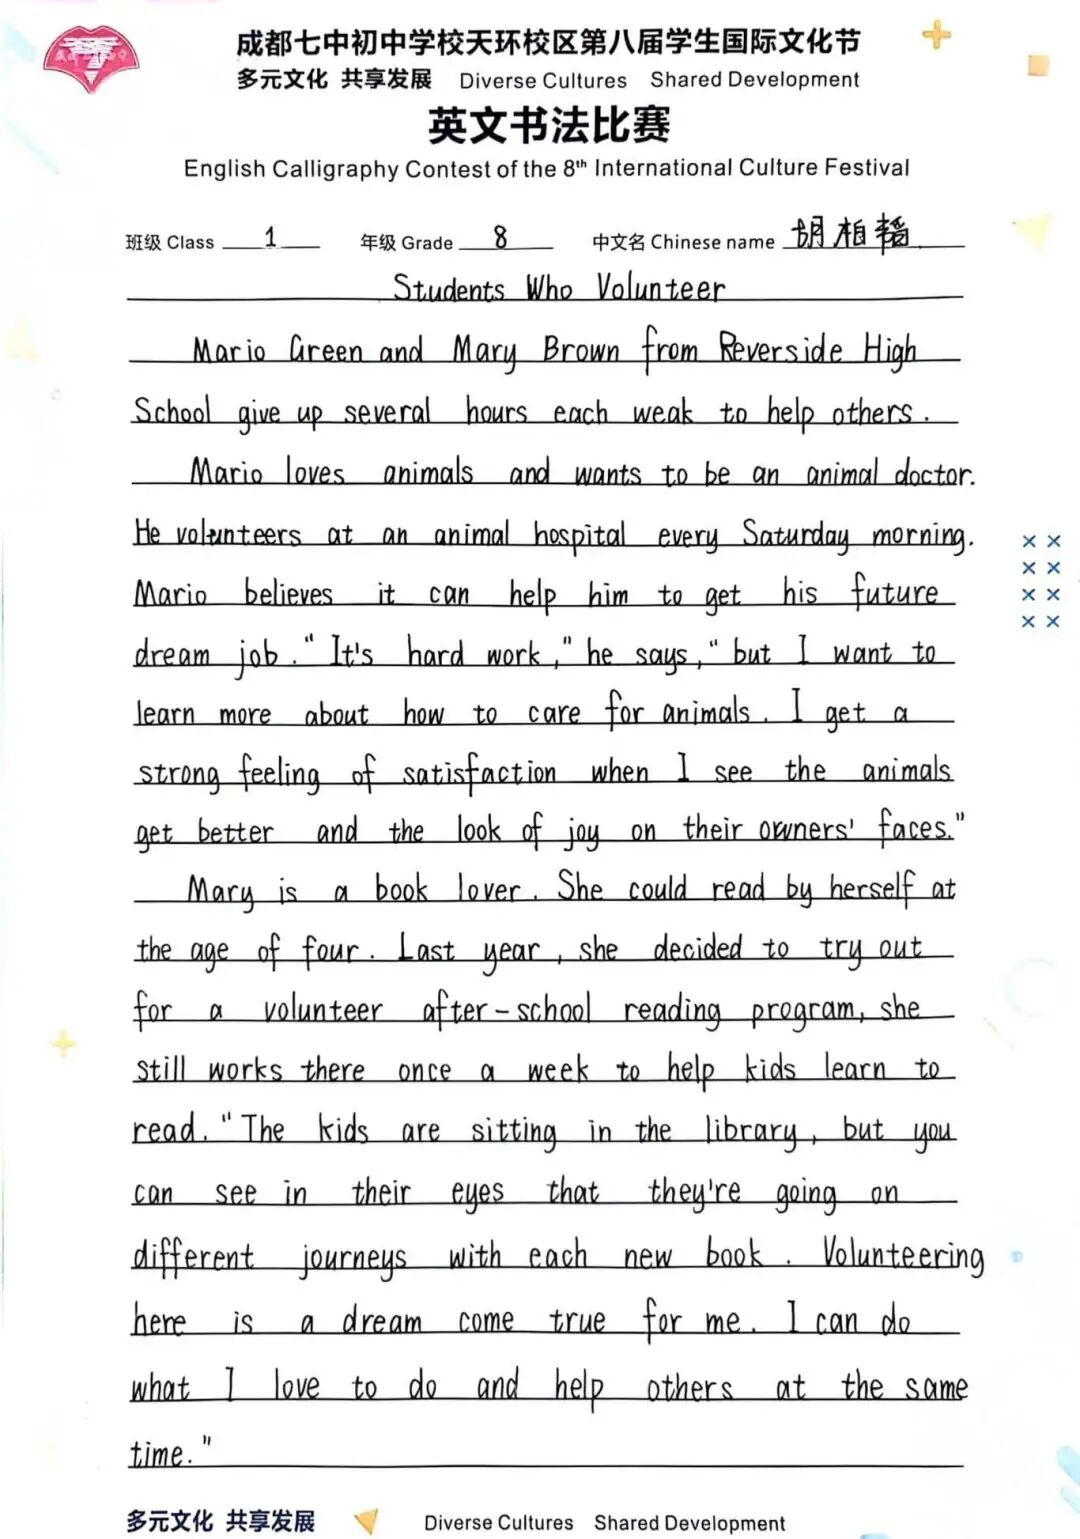 成都七中初中学校天环校区第八届学生国际文化节
多元文化 共享发展 Diverse Cultures Shared Development
英文书法比赛
English Calligraphy Contest of the 8th International Culture Festival
班级 Class 1 年级 Grade 8 中文名 Chinese name 胡柏韬
Students Who Volunteer
Mario Green and Mary Brown from Reverside High
School give up several hours each weak to help others.
Mario loves animals and wants to be an animal doctor.
He volunteers at an animal hospital every Saturday morning.
Mario believes it can help him to get his future
dream job. "It's hard work," he says, "but I want to
learn more about how to care for animals. I get a
strong feeling of satisfaction when I see the animals
get better and the look of joy on their owners' faces."
Mary is a book lover. She could read by herself at
the age of four. Last year, she decided to try out
for a volunteer after-school reading program, she
still works there once a week to help kids learn to
read. "The kids are sitting in the library, but you
can see in their eyes that they're going on
different journeys with each new book. Volunteering
here is a dream come true for me. I can do
what I love to do and help others at the same
time."
多元文化 共享发展 Diverse Cultures Shared Development